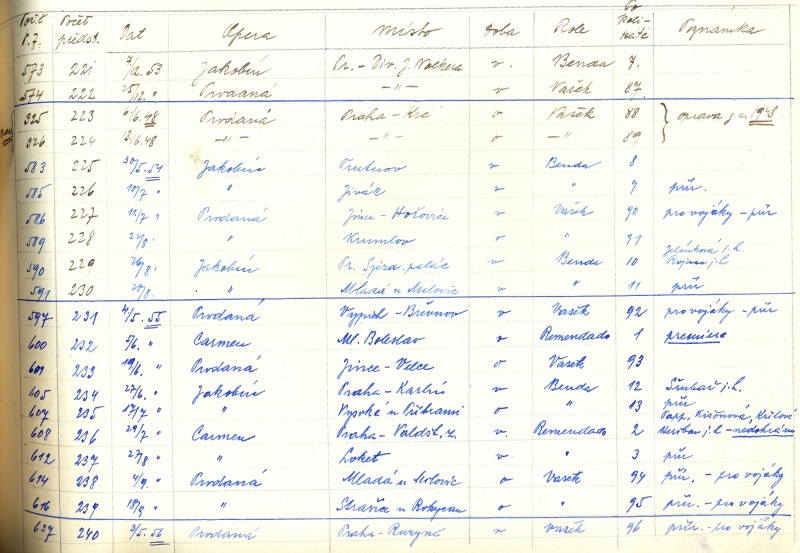 Poř. Počet Dat Opera Místo Doba Role Po koli- káté Poznámka
č. předst.
573 221 7/2. 53 Jakobín Pr. - Div. J. Wolkera v. Benda 7.
574 222 25/12. " Prodaná -"- v. Vašek 87.
325 223 6/6. 48 Prodaná Praha - Krč o Vašek 88 oprava z r. 1948.
326 224 13/6. 48 -"- -"- o -"- 89
583 225 30/5. 54 Jakobín Trutnov v Benda 8
585 226 10/7 " " v " 9 přír.
586 227 12/7 " Prodaná Jince - Hořovice v Vašek 90 pro vojáky - přír
589 228 22/8. " Krumlov o " 91
590 229 26/8. Jakobín Pr. Sjezd. palác v Benda 10 Jelínková j. h.
591 230 28/8. " Mladá u Milovic v " 11 přír
597 231 4/5. 55 Prodaná Vypich - Břevnov v Vašek 92 pro vojáky - přír
600 232 5/6. " Carmen Ml. Boleslav v Remendado 1 premiéra
601 233 19/6. " Prodaná Jince - Velce o Vašek 93
605 234 27/6. " Jakobín Praha - Karlín v Benda 12 j. h.
607 235 17/7 " " Vysoké u Příbrami o " 13 přír
608 236 29/7 " Carmen Praha - Valdšt. z. v. Remendado 2 j. h. - nedohráno
612 237 27/8 " " Loket v " 3 přír
614 238 4/9. " Prodaná Mladá u Milovic o Vašek 94 přír. - pro vojáky
616 239 18/9 " " Strašice u Rokycan o " 95 přír. - pro vojáky
637 240 3/5. 56 Prodaná Praha - Ruzyně v Vašek 96 přír. - pro vojáky